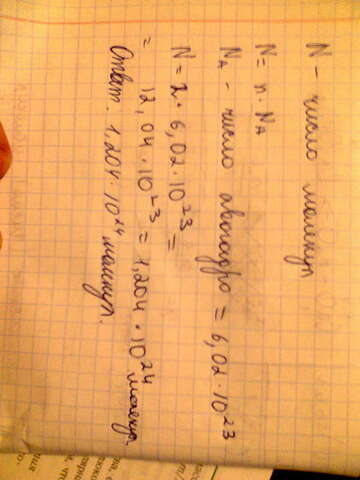 N - число молекул
N = n · NA
NA - число авогадро = 6,02 · 10²³
N = 2 · 6,02 · 10²³ =
= 12,04 · 10²³ = 1,204 · 10²⁴ молекул
Ответ. 1,204 · 10²⁴ молекул.